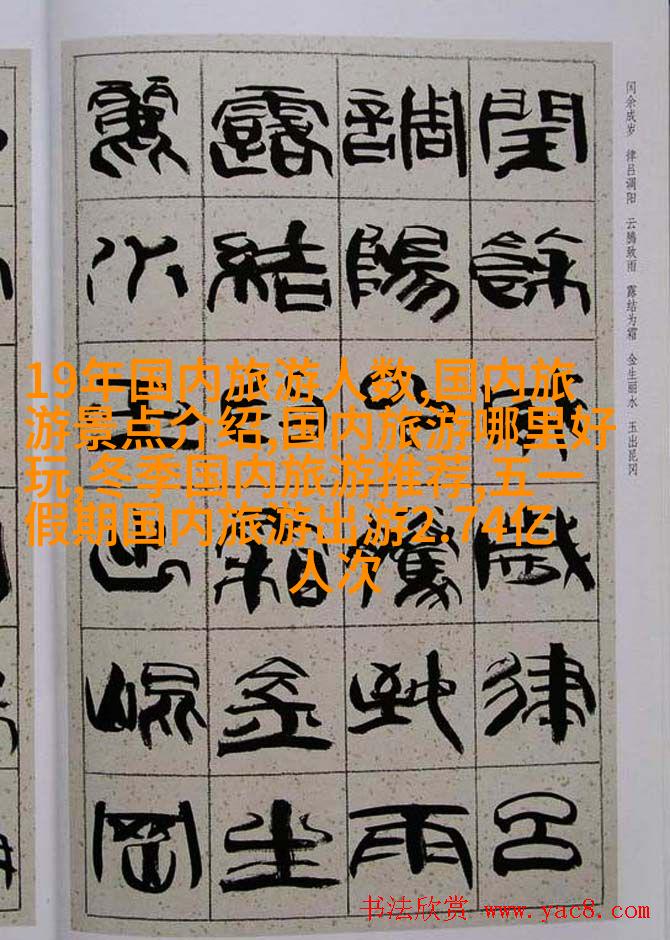 闰余成岁 律吕调阳 云腾致雨 露结为霜 金生丽水 玉出昆冈
閏餘成歲律呂
調陽云騰致雨
露結為霜金生
麗水玉出崐岡
19年国内旅游人数,国内旅
游景点介绍,国内旅游哪里好
玩,冬季国内旅游推荐,五一
假期国内旅游出游2.74亿
人次
书法欣赏 www.yac8.com